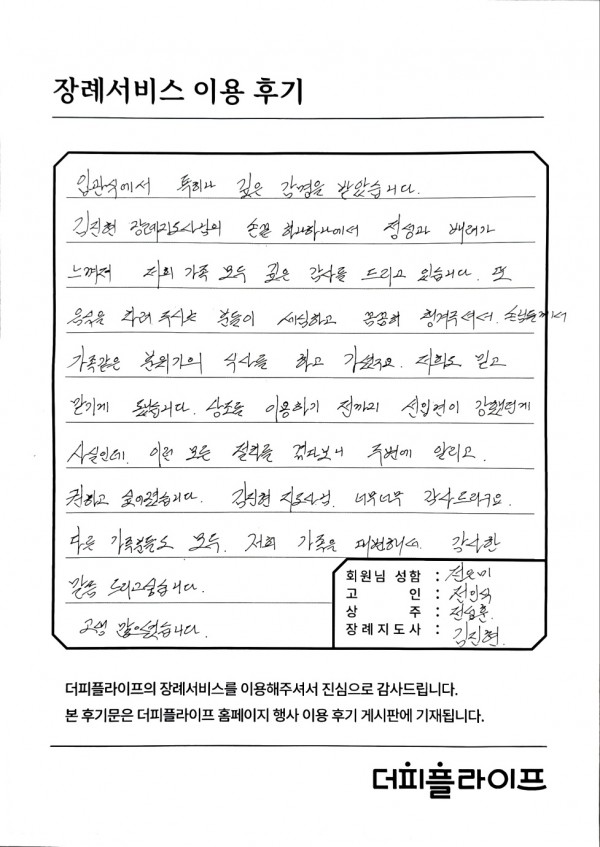 장례서비스 이용 후기
입관식에서 특히나 깊은 감명을 받았습니다.
김진현 장례지도사님의 손끝 하나하나에서 정성과 배려가
느껴져 저희 가족 모두 깊은 감사를 드리고 있습니다. 또
음식을 차려 주시는 분들이 세심하고 꼼꼼히 챙겨주셔서. 손님들께서
가족같은 분위기의 식사를 하고 가셨지요. 저희도 믿고
맡기게 됐습니다. 상조를 이용하기 전까지 선입견이 강했던게
사실인데. 이런 모든 절차를 겪다보니 주변에 알리고.
권하고 싶어졌습니다. 김진현 지도사님. 너무너무 감사드리구요.
다른 가족분들도 모두. 저희 가족을 대변해서. 감사한
말씀 드리고싶습니다.
고생 많으셨습니다.
회원님 성함 : 전
고 인 : 전인식
상 주 : 전성훈.
장례지도사 : 김진현.
더피플라이프의 장례서비스를 이용해주셔서 진심으로 감사드립니다.
본 후기문은 더피플라이프 홈페이지 행사 이용 후기 게시판에 기재됩니다.
더피플라이프